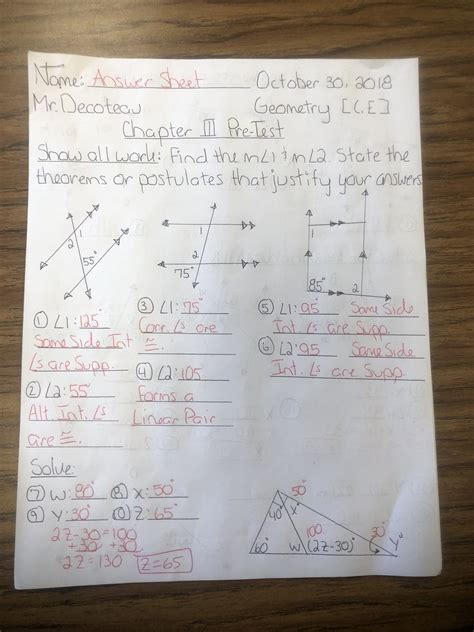 Name: Answer Sheet October 30, 2018
Mr. Decoteau Geometry [C,E]
Chapter III Pre-Test
Show all work: Find the m∠1 & m∠2. State the
theorems or postulates that justify your answers
1
2
55°
1
2
75°
1
85°
2
① ∠1: 125°
Same Side Int
∠s are Supp.
② ∠2: 55°
Alt. Int. ∠s
are ≅.
③ ∠1: 75°
Corr. ∠s are
≅.
④ ∠2: 105
Forms a
Linear Pair
⑤ ∠1: 95° Same Side
Int. ∠s are Supp.
⑥ ∠2: 95 Same Side
Int. ∠s are Supp.
Solve:
⑦ W: 80° ⑧ X: 50°
⑨ Y: 30° ⑩ Z: 65°
2Z-30=100
+30 +30
2Z=130 Z=65
50°
40° x°
100
30°
60° W (2Z-30)° Y°